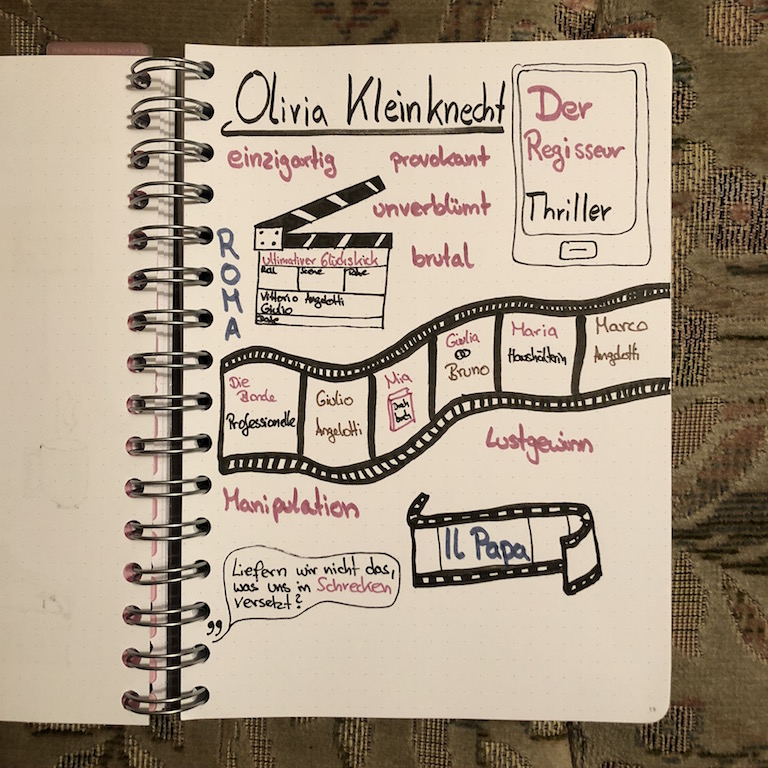 Olivia Kleinknecht
Der
Regisseur
Thriller
einzigartig
provokant
unverblümt
brutal
ROMA
ultimativer Glückskick
Roll
Scene
Take
Vittorio Angelotti
Giulio
Date
Die
Bande
Professionelle
Giulio
Angelotti
Mia
Dreh
buch
Giulia
Bruno
Maria
Haushälterin
Marco
Angelotti
Lustgewinn
Manipulation
Il Papa
Liefern wir nicht das,
was uns in Schrecken
versetzt?